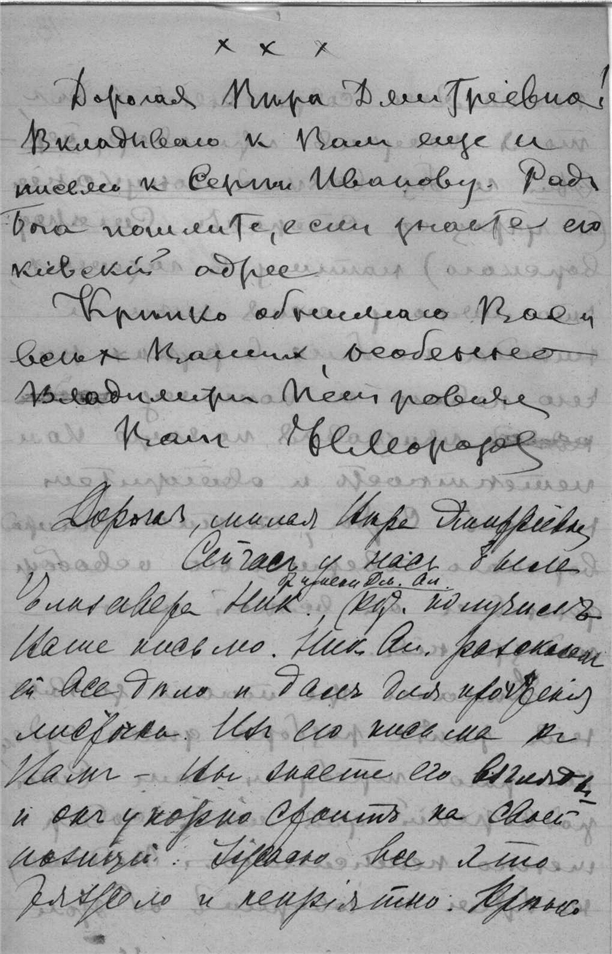 × × ×
Дорогая Вѣра Дмитріевна!
Вкладываю к Вам еще и
письмо к Сергѣю Иванову. Ради
Бога пошлите, если знаете его
кіевскій адрес
Крѣпко обнимаю Вас и
всѣх Ваших, особенно
Владимира Петровича
Ваш Н Морозов
Дорогая, милая Вѣра Дмитріевна,
Сейчасъ у насъ были
Елизавета Ник. и Дм. Ал., получилъ
Ваше письмо. Ник. Ал. разсказал
ей все дѣло и далъ для прочтенія
листочки. Из его письма к
Вамъ – Вы знаете его взгляды
и онъ упорно стоитъ на своей
позиціи. все это
тяжело и непріятно. Крѣпко